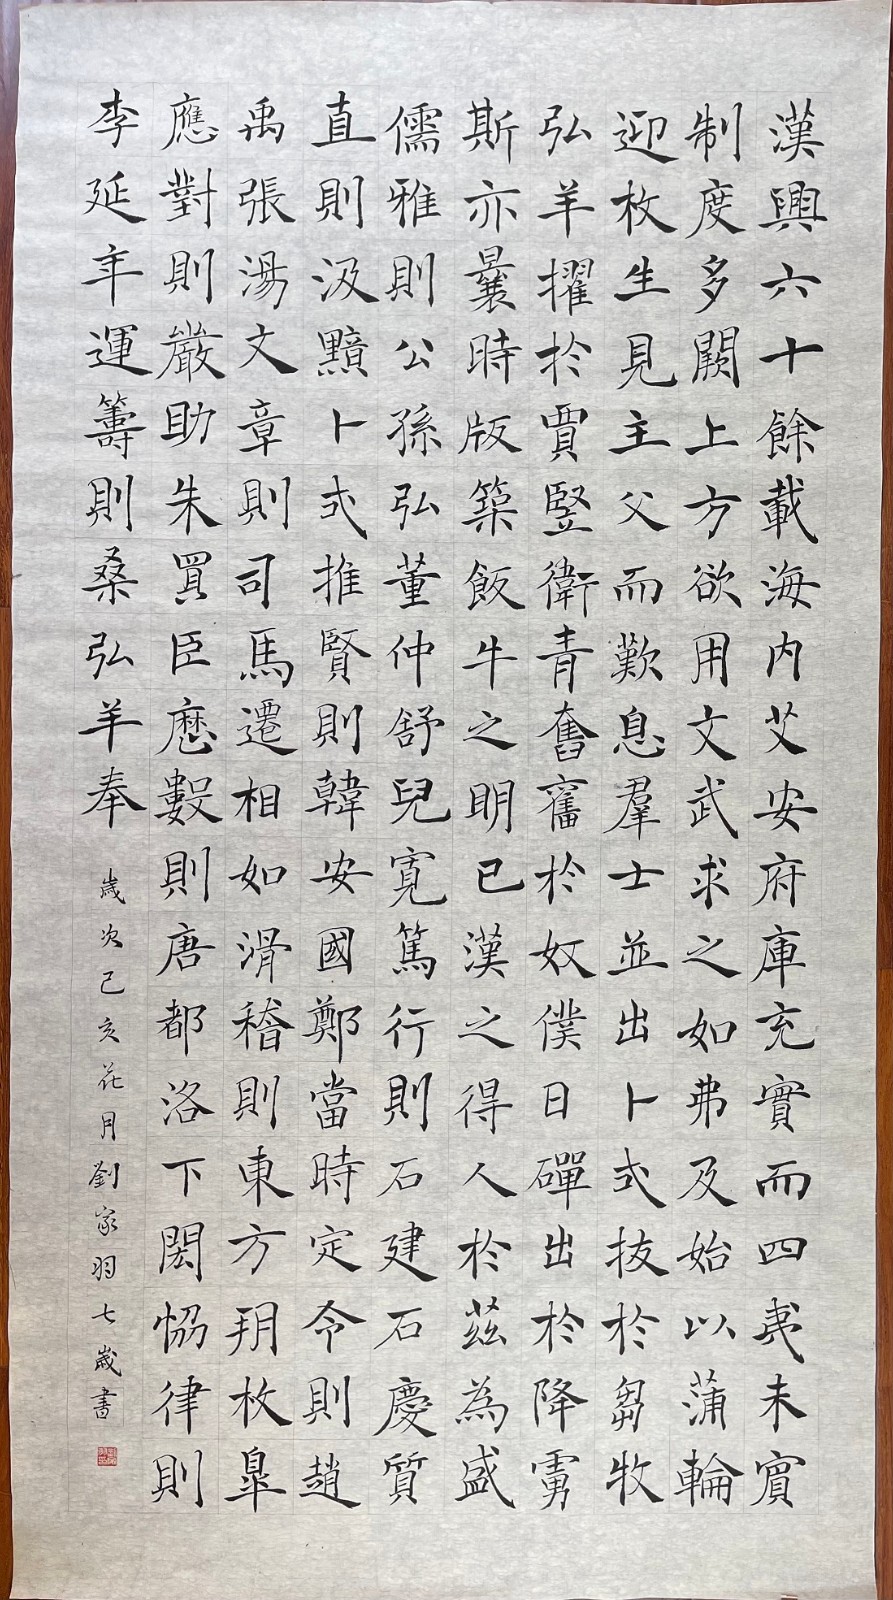 漢興六十餘載海內艾安府庫充實而四夷未賓
制度多闕上方欲用文武求之如弗及始以蒲輪
迎枚生見主父而歎息羣士並出卜式拔於芻牧
弘羊擢於賈豎衛青奮奮於奴僕日磾出於降虜
斯亦曩時版築飯牛之明已漢之得人於茲為盛
儒雅則公孫弘董仲舒兒寬篤行則石建石慶質
直則汲黯卜式推賢則韓安國鄭當時定令則趙
禹張湯文章則司馬遷相如滑稽則東方朔枚皋
應對則嚴助朱買臣曆數則唐都洛下閎恊律則
李延年運籌則桑弘羊奉
歲次己亥花月劉家羽七歲書